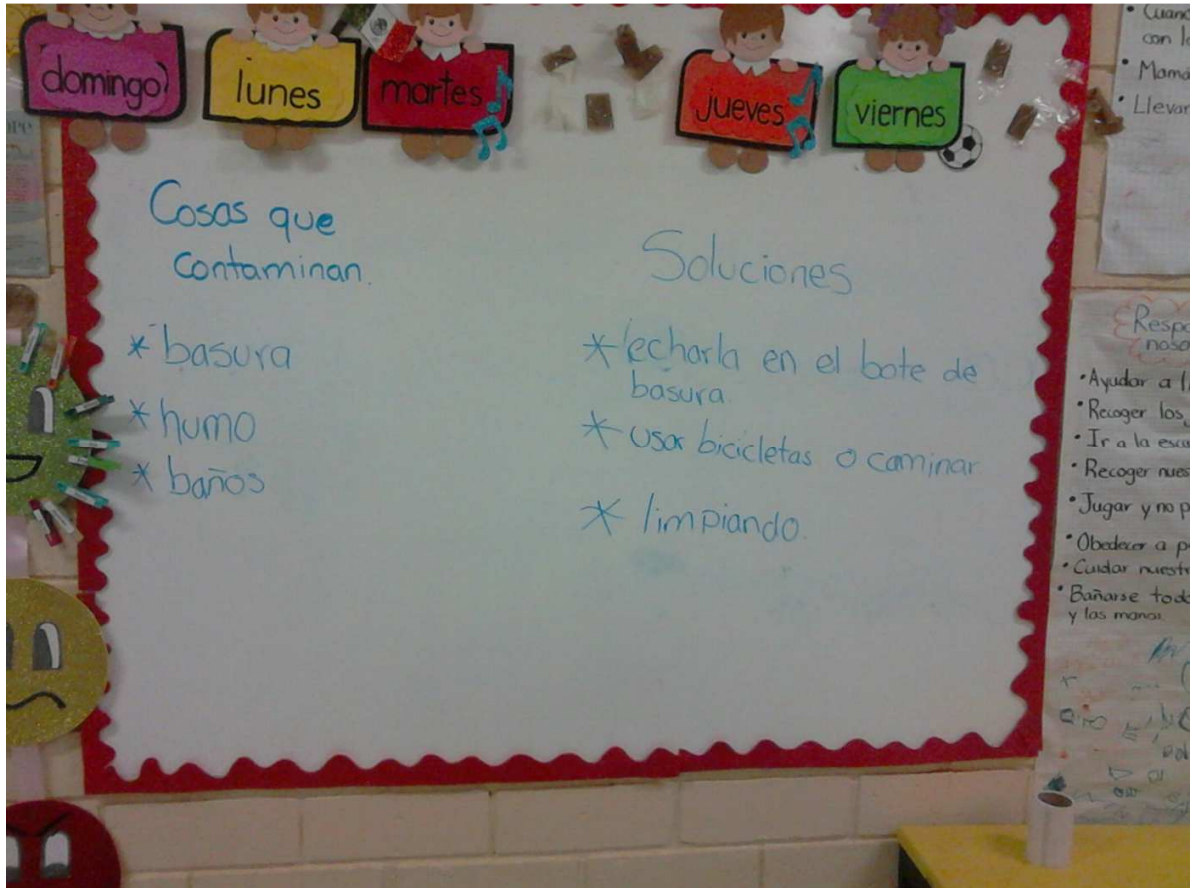 domingo
lunes
martes
jueves
viernes
Cosas que
contaminan.
* basura
* humo
* baños
Soluciones
* echarla en el bote de
basura.
* usar bicicletas o caminar
* limpiando.
con
• Mamá
• Llevar
• Ayudar a
• Recoger los
• Ir a la
• Recoger
• Jugar y no
• Obedecer a
• Cuidar
• Bañarse
y las manos.